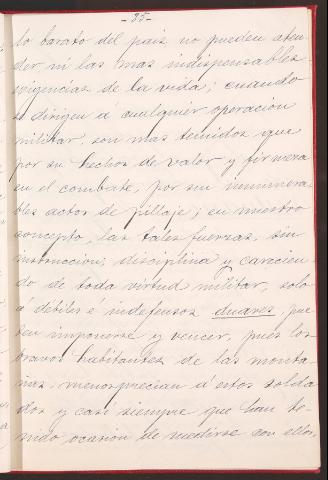 -35-
lo barato del pais no pueden aten-
der ni las mas indispensables
exigencias de la vida; cuando
se dirigen á cualquier operación
militar, son mas temidos que
por su hechos de valor y firmeza
en el combate, por sus innumera-
bles actos de pillaje; en nuestro
concepto, las tales fuerzas, sin
instruccion, disciplina y carecien-
do de toda virtud militar, solo
á débiles é indefensos duares, pue-
den imponerse y vencer, pues los
bravos habitantes de las monta-
ñas, menosprecian á estos solda-
dos y casi siempre que han te-
nido ocasion de medirse con ellos,